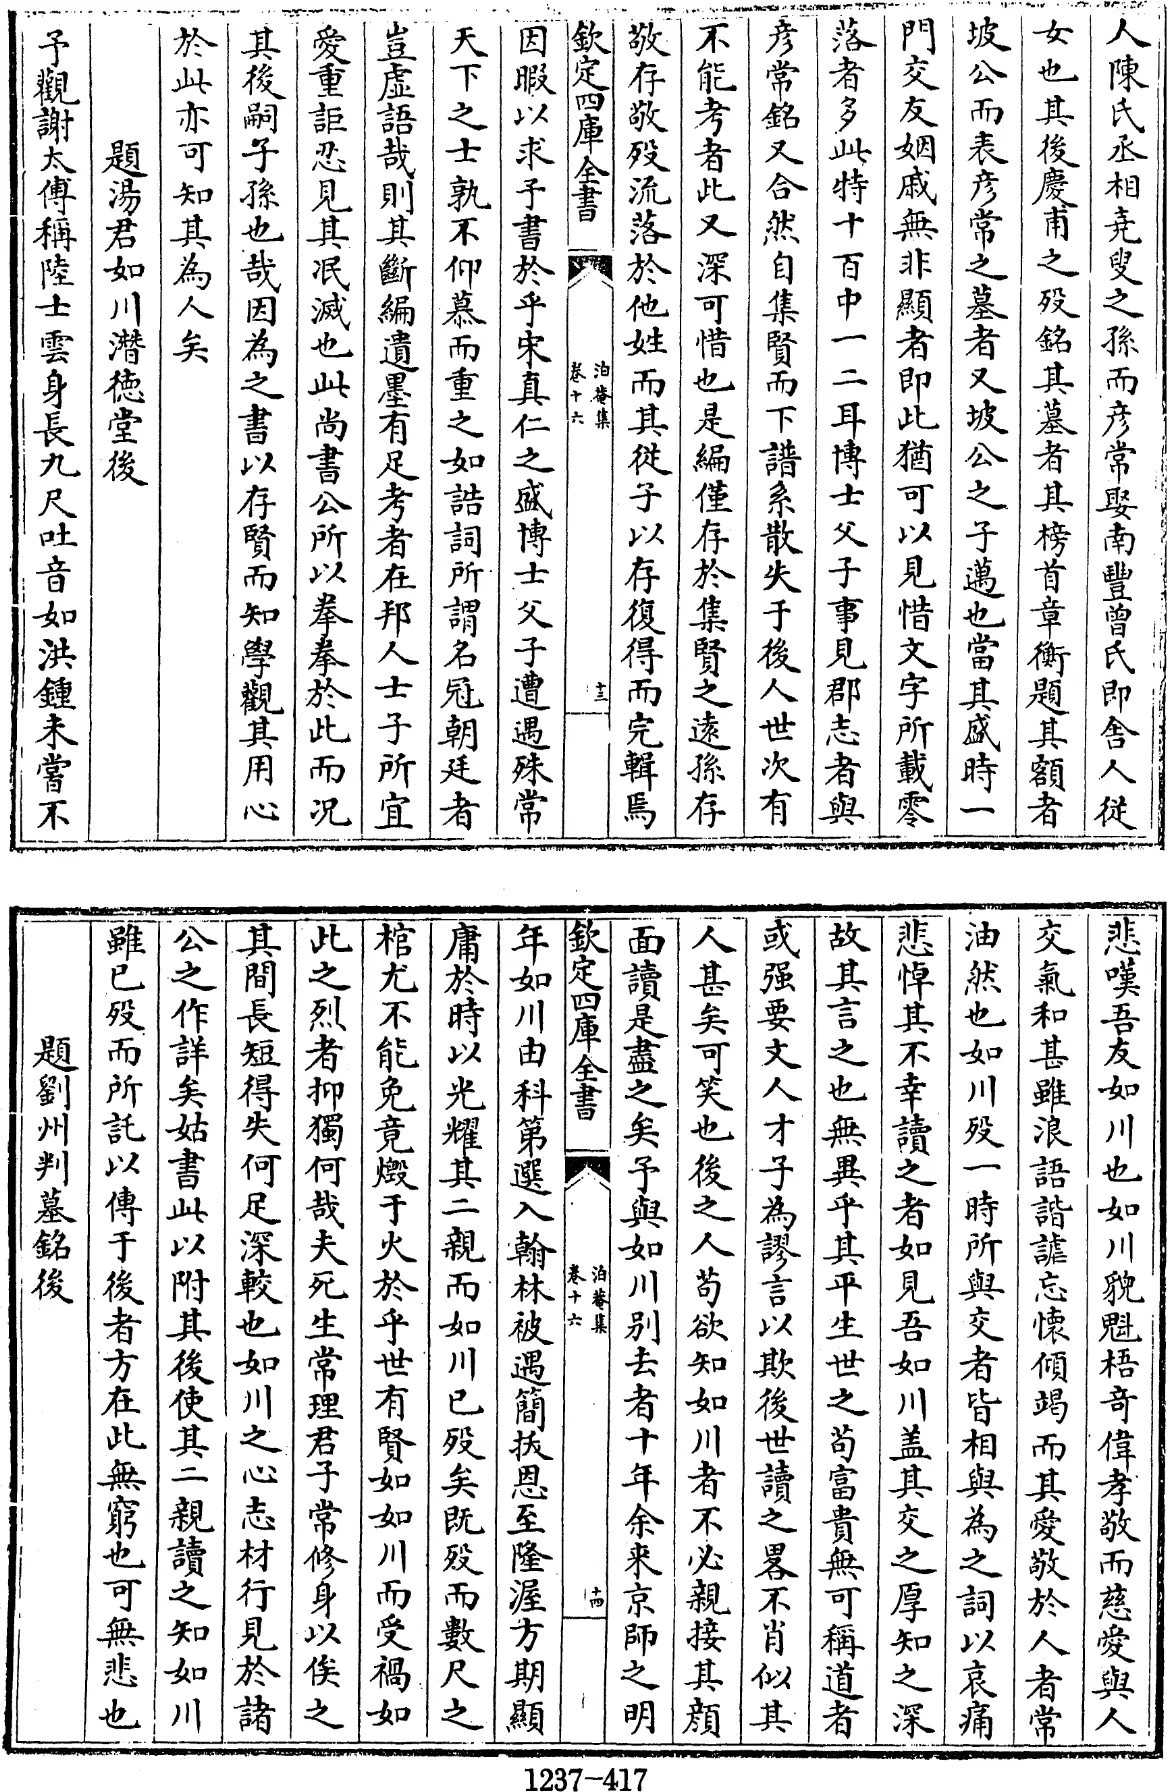 人陳氏丞相堯叟之孫而彦常娶南豐曾氏即舍人從
女也其後慶甫之殁銘其墓者其榜首章衡題其額者
坡公而表彦常之墓者又坡公之子邁也當其盛時一
門交友姻戚無非顯者即此猶可以見惜文字所載零
落者多此特十百中一二耳博士父子事見郡志者與
彦常銘又合然自集賢而下譜系散失于後人世次有
不能考者此又深可惜也是編僅存於集賢之遠孫存
敬存敬殁流落於他姓而其從子以存復得而完輯焉
欽定四庫全書
泊菴集
卷十六
十三
因暇以求予書於乎宋真仁之盛博士父子遭遇殊常
天下之士孰不仰慕而重之如誥詞所謂名冠朝廷者
豈虚語哉則其斷編遺墨有足考者在邦人士子所宜
愛重詎忍見其泯滅也此尚書公所以拳拳於此而况
其後嗣子孫也哉因為之書以存賢而知學觀其用心
於此亦可知其為人矣
題湯君如川濳德堂後
予觀謝太傅稱陸士雲身長九尺吐音如洪鍾未嘗不
悲嘆吾友如川也如川貌魁梧奇偉孝敬而慈愛與人
交氣和甚雖浪語諧謔忘懷傾竭而其愛敬於人者常
油然也如川殁一時所與交者皆相與為之詞以哀痛
悲悼其不幸讀之者如見吾如川盖其交之厚知之深
故其言之也無異乎其平生世之苟富貴無可稱道者
或强要文人才子為謬言以欺後世讀之畧不肖似其
人甚矣可笑也後之人苟欲知如川者不必親接其顔
面讀是盡之矣予與如川别去者十年余来京師之明
欽定四庫全書
泊菴集
卷十六
十四
年如川由科第選入翰林被遇簡拔恩至隆渥方期顯
庸於時以光耀其二親而如川已殁矣既殁而數尺之
棺尤不能免竟燬于火於乎世有賢如如川而受禍如
此之烈者抑獨何哉夫死生常理君子常修身以俟之
其間長短得失何足深較也如川之心志材行見於諸
公之作詳矣姑書此以附其後使其二親讀之知如川
雖已殁而所託以傳于後者方在此無窮也可無悲也
題劉州判墓銘後
1237-417